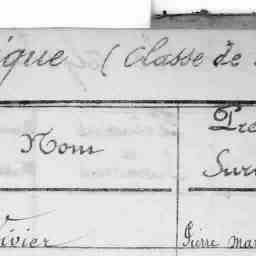 ique (Classe de
Nom
Pre
Sur
Vivier
Pierre Mar